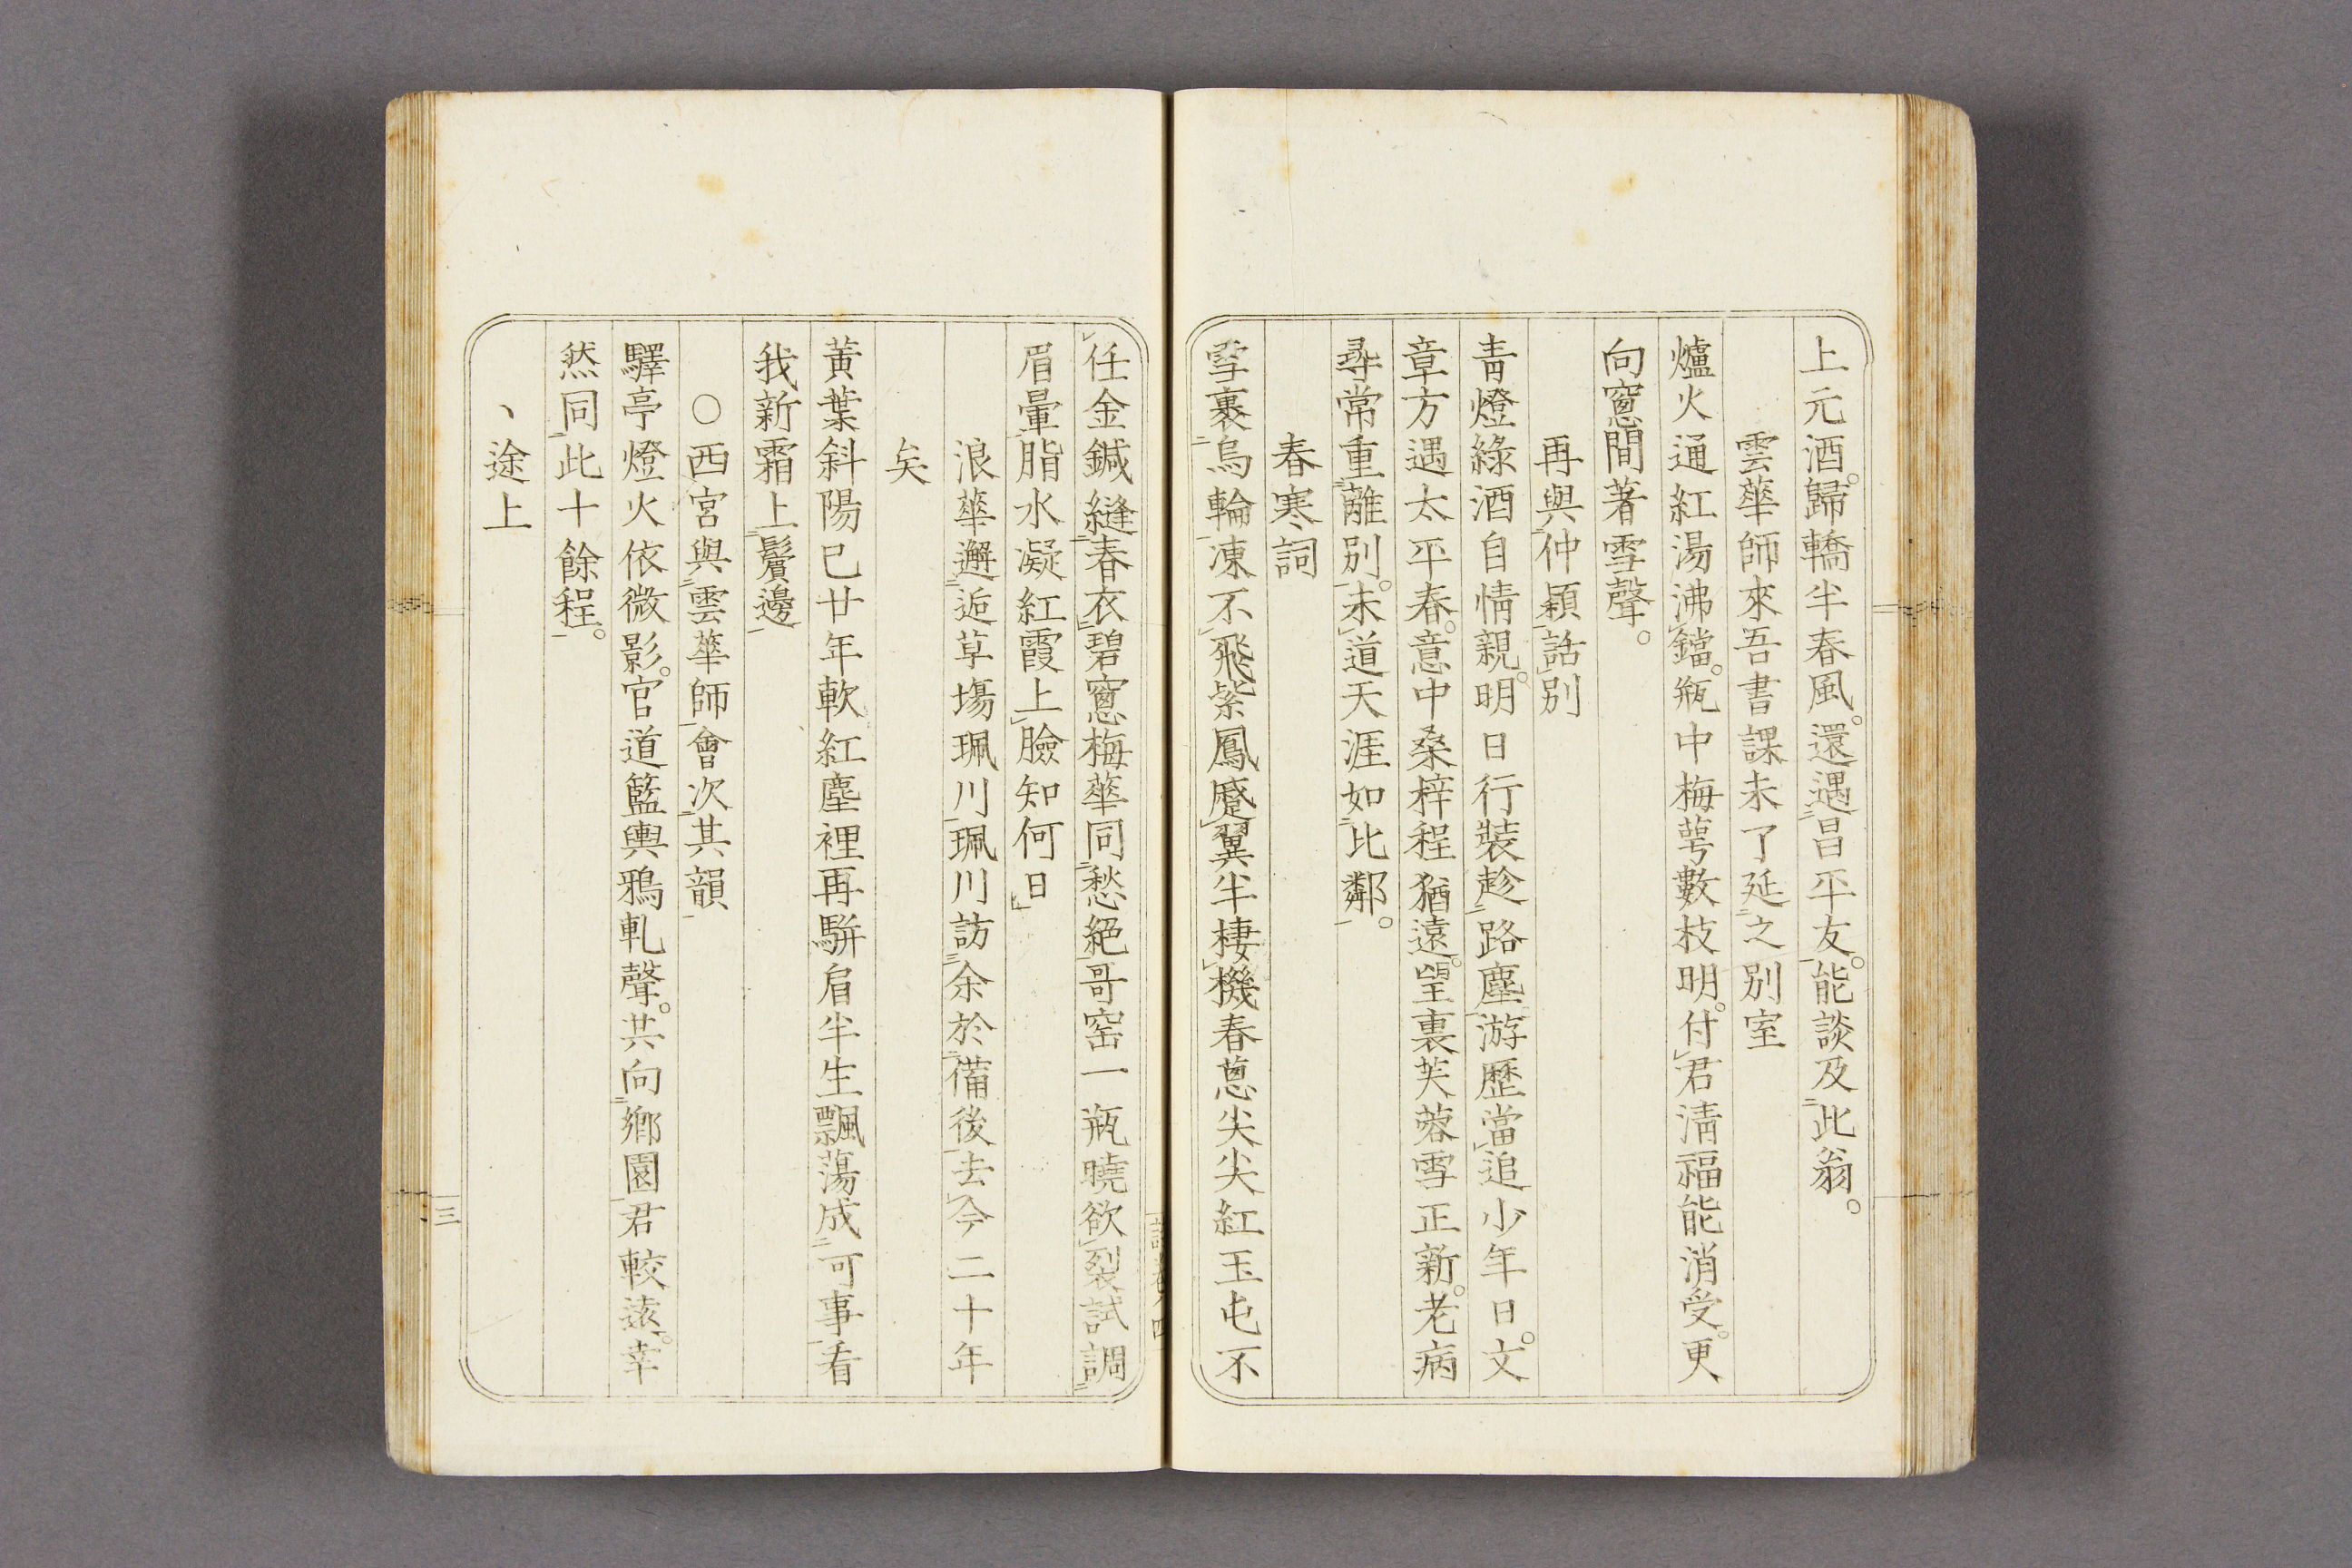 上元酒。歸轎半春風。還遇昌平友。能談及此翁。
雲華師來吾書課未了延之別室
爐火通紅湯沸鐺。瓶中梅萼數枝明。付君清福能消受。更
向窻間著雪聲。
再與仲穎話別
青燈綠酒自情親。明日行裝趁路塵。游歷當追少年日。文
章方遇太平春。意中桑梓程猶遠。望裏芙蓉雪正新。老病
尋常重離別。未道天涯如比鄰。
春寒詞
雪裹烏輪凍不飛紫鳳蹙翼半棲機春蔥尖尖紅玉屯不
任金鍼縫春衣碧窻梅華同愁絕哥窑一瓶曉欲裂試調
眉暈脂水凝紅霞上臉知何日
浪華邂逅草塲珮川珮川訪余於備後去今二十年
矣
黃葉斜陽已廿年軟紅塵裡再駢肩半生飄蕩成可事看
我新霜上鬢邊
○西宮與雲華師會次其韻
驛亭燈火依微影。官道籃輿鴉軋聲。共向鄉園君較遠。幸
然同此十餘程。
、途上
三